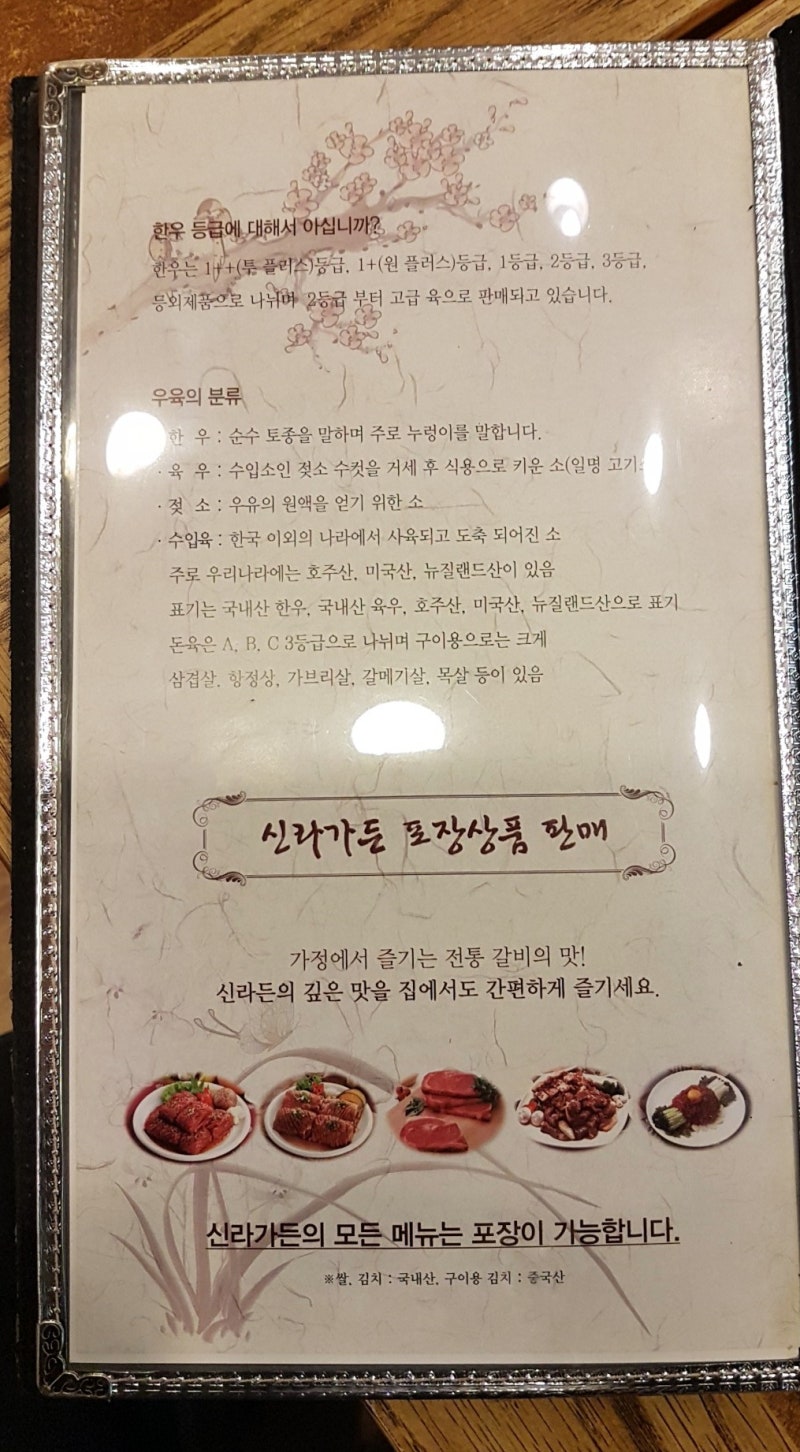 한우 등급에 대해서 아십니까?
한우는 1++(투 플러스)등급, 1+(원 플러스)등급, 1등급, 2등급, 3등급,
등외제품으로 나뉘며 2등급 부터 고급 육으로 판매되고 있습니다.
우육의 분류
한 우 : 순수 토종을 말하며 주로 누렁이를 말합니다.
· 육 우 : 수입소인 젖소 수컷을 거세 후 식용으로 키운 소(일명 고기소
· 젖 소 : 우유의 원액을 얻기 위한 소
· 수입육 : 한국 이외의 나라에서 사육되고 도축 되어진 소
주로 우리나라에는 호주산, 미국산, 뉴질랜드산이 있음
표기는 국내산 한우, 국내산 육우, 호주산, 미국산, 뉴질랜드산으로 표기
돈육은 A, B, C 3등급으로 나뉘며 구이용으로는 크게
삼겹살, 항정상, 가브리살, 갈메기살, 목살 등이 있음
신라가든 포장상품 판매
가정에서 즐기는 전통 갈비의 맛!
신라든의 깊은 맛을 집에서도 간편하게 즐기세요.
신라가든의 모든 메뉴는 포장이 가능합니다.
※쌀, 김치 : 국내산, 구이용 김치 : 중국산